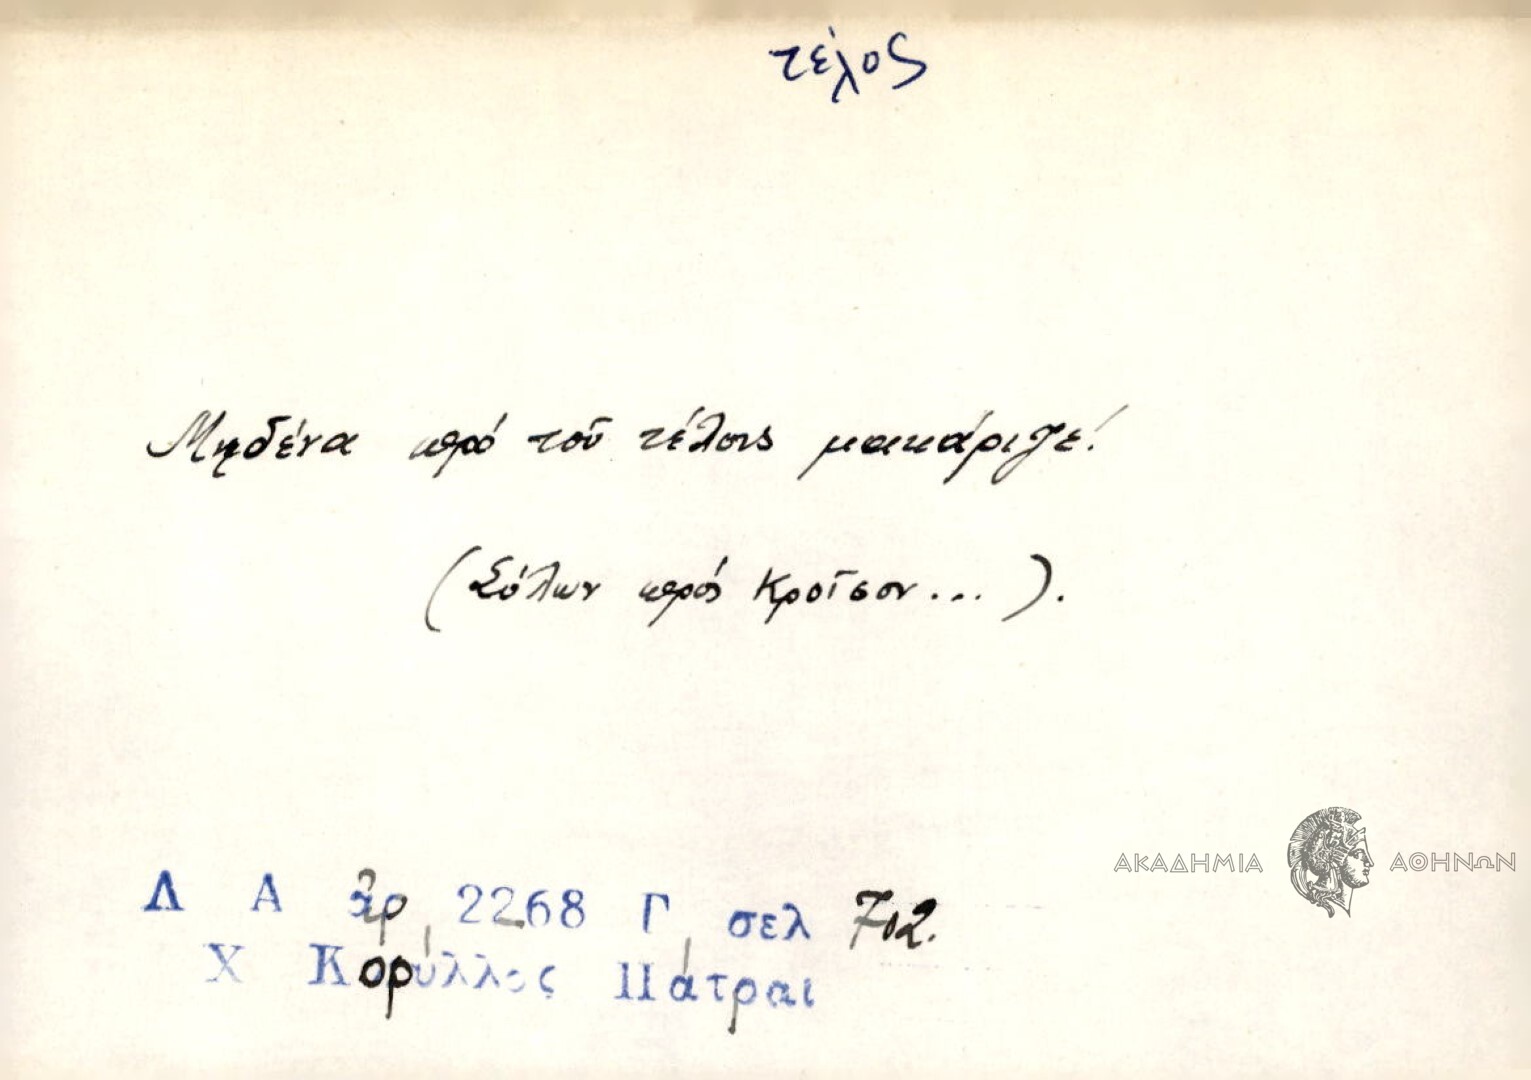 τέλος
Μηδένα πρό τοῦ τέλους μακάριζε!
(Σόλων πρός Κροῖσον...).
ΑΚΑΔΗΜΙΑ ΑΘΗΝΩΝ
Λ Α ἀρ 2268 Γ σελ 702.
Χ Κορύλλος Πάτραι